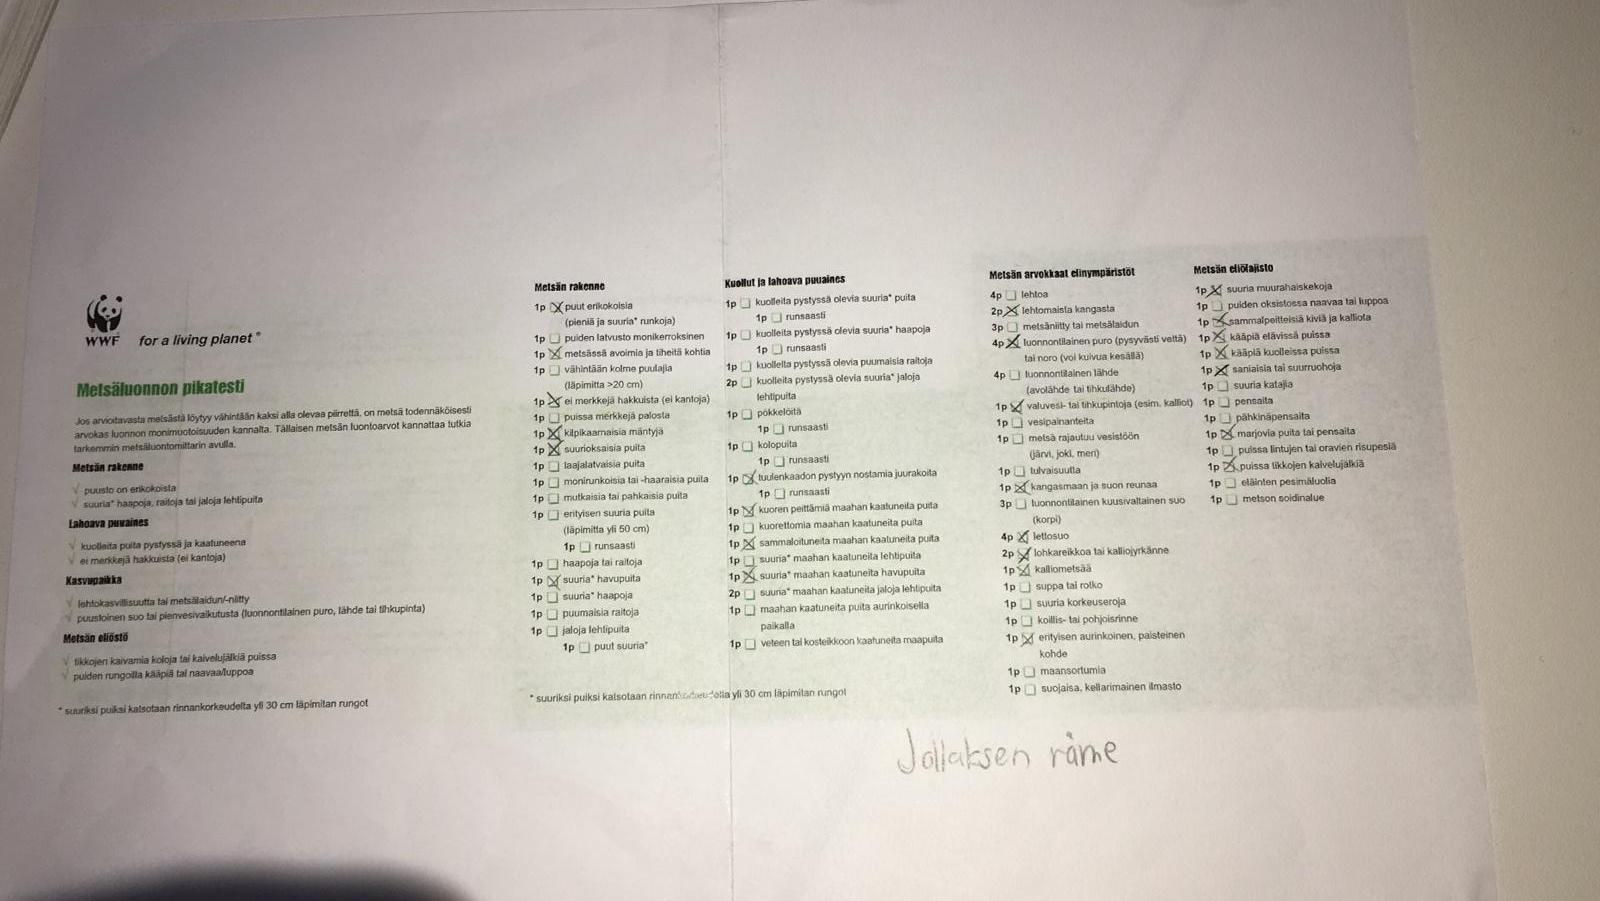 WWF
for a living planet®
Metsäluonnon pikatesti
Jos arvioitavasta metsästä löytyy vähintään kaksi alla olevaa piirrettä, on metsä todennäköisesti
arvokas luonnon monimuotoisuuden kannalta. Tällaisen metsän luontoarvot kannattaa tutkia
tarkemmin metsäluontomittarin avulla.
Metsän rakenne
√ puusto on erikokoista
√ suuria* haapoja, raitoja tai jaloja lehtipuita
Lahoava puuaines
√ kuolleita puita pystyssä ja kaatuneena
√ ei merkkejä hakkuista (ei kantoja)
Kasvupaikka
√ lehtokasvillisuutta tai metsälaidun/-niitty
√ puustoinen suo tai pienvesivaikutusta (luonnontilainen puro, lähde tai tihkupinta)
Metsän eliöstö
√ tikkojen kaivamia koloja tai kaivelujälkiä puissa
√ puiden rungoilla kääpiä tai naavaa/luppoa
* suuriksi puiksi katsotaan rinnankorkeudelta yli 30 cm läpimitan rungot
Metsän rakenne
1p ☒ puut erikokoisia
(pieniä ja suuria* runkoja)
1p ☐ puiden latvusto monikerroksinen
1p ☒ metsässä avoimia ja tiheitä kohtia
1p ☐ vähintään kolme puulajia
(läpimitta >20 cm)
1p ☒ ei merkkejä hakkuista (ei kantoja)
1p ☐ puissa merkkejä palosta
1p ☒ kilpikaarnaisia mäntyjä
1p ☒ suurioksaisia puita
1p ☐ laajalatvaisia puita
1p ☐ monirunkoisia tai -haaraisia puita
1p ☐ mutkaisia tai pahkaisia puita
1p ☐ erityisen suuria puita
(läpimitta yli 50 cm)
1p ☐ runsaasti
1p ☐ haapoja tai raitoja
1p ☒ suuria* havupuita
1p ☐ suuria* haapoja
1p ☐ puumaisia raitoja
1p ☐ jaloja lehtipuita
1p ☐ puut suuria*
* suuriksi puiksi katsotaan rinnankorkeudelta yli 30 cm läpimitan rungot
Kuollut ja lahoava puuaines
1p ☐ kuolleita pystyssä olevia suuria* puita
1p ☐ runsaasti
1p ☐ kuolleita pystyssä olevia suuria* haapoja
1p ☐ runsaasti
1p ☐ kuolleita pystyssä olevia puumaisia raitoja
2p ☐ kuolleita pystyssä olevia suuria* jaloja
lehtipuita
1p ☐ pökkelöitä
1p ☐ runsaasti
1p ☐ kolopuita
1p ☐ runsaasti
1p ☒ tuulenkaadon pystyyn nostamia juurakoita
1p ☐ runsaasti
1p ☒ kuoren peittämiä maahan kaatuneita puita
1p ☐ kuorettomia maahan kaatuneita puita
1p ☒ sammaloituneita maahan kaatuneita puita
1p ☐ suuria* maahan kaatuneita lehtipuita
1p ☒ suuria* maahan kaatuneita havupuita
2p ☐ suuria* maahan kaatuneita jaloja lehtipuita
1p ☐ maahan kaatuneita puita aurinkoisella
paikalla
1p ☐ veteen tai kosteikkoon kaatuneita maapuita
Metsän arvokkaat elinympäristöt
4p ☐ lehtoa
2p ☒ lehtomaista kangasta
3p ☐ metsäniitty tai metsälaidun
4p ☒ luonnontilainen puro (pysyvästi vettä)
tai noro (voi kuivua kesällä)
4p ☐ luonnontilainen lähde
(avolähde tai tihkulähde)
1p ☒ valuvesi- tai tihkupintoja (esim. kalliot)
1p ☐ vesipainanteita
1p ☐ metsä rajautuu vesistöön
(järvi, joki, meri)
1p ☐ tulvaisuutta
1p ☒ kangasmaan ja suon reunaa
3p ☐ luonnontilainen kuusivaltainen suo
(korpi)
4p ☒ lettosuo
2p ☒ lohkareikkoa tai kalliojyrkänne
1p ☒ kalliometsää
1p ☐ suppa tai rotko
1p ☐ suuria korkeuseroja
1p ☐ koillis- tai pohjoisrinne
1p ☒ erityisen aurinkoinen, paisteinen
kohde
1p ☐ maansortumia
1p ☐ suojaisa, kellarimainen ilmasto
Metsän eliölajisto
1p ☒ suuria muurahaiskekoja
1p ☐ puiden oksistossa naavaa tai luppoa
1p ☒ sammalpeitteisiä kiviä ja kallioita
1p ☒ kääpiä elävissä puissa
1p ☒ kääpiä kuolleissa puissa
1p ☒ saniaisia tai suurruohoja
1p ☐ suuria katajia
1p ☐ pensaita
1p ☐ pähkinäpensaita
1p ☒ marjovia puita tai pensaita
1p ☐ puissa lintujen tai oravien risupesiä
1p ☒ puissa tikkojen kaivelujälkiä
1p ☐ eläinten pesimäluolia
1p ☐ metson soidinalue
Jollaksen räme